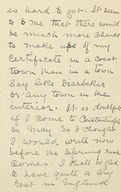 is hard to get. It seems
to me that there would
be much more chance
to make use of my
Certificate in a coast
town than in a town
say like Diarbekir
or any town in the
interior. It is doubtful
if I come to Constantinople
in May. So I thought
I would write now
before the
comes. I shall be glad
to have quite a long
rest in England